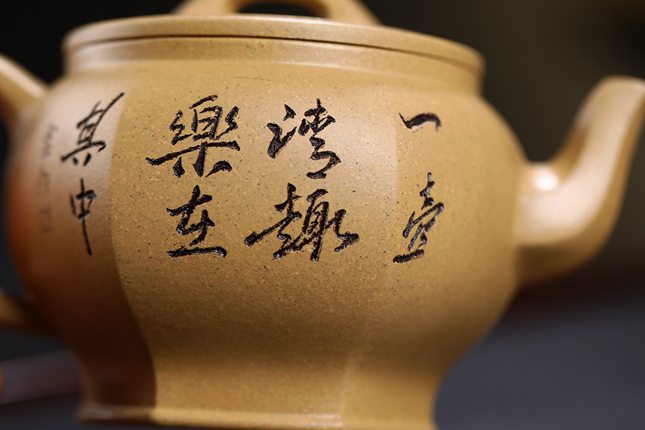 一壺
清趣
樂在
其中